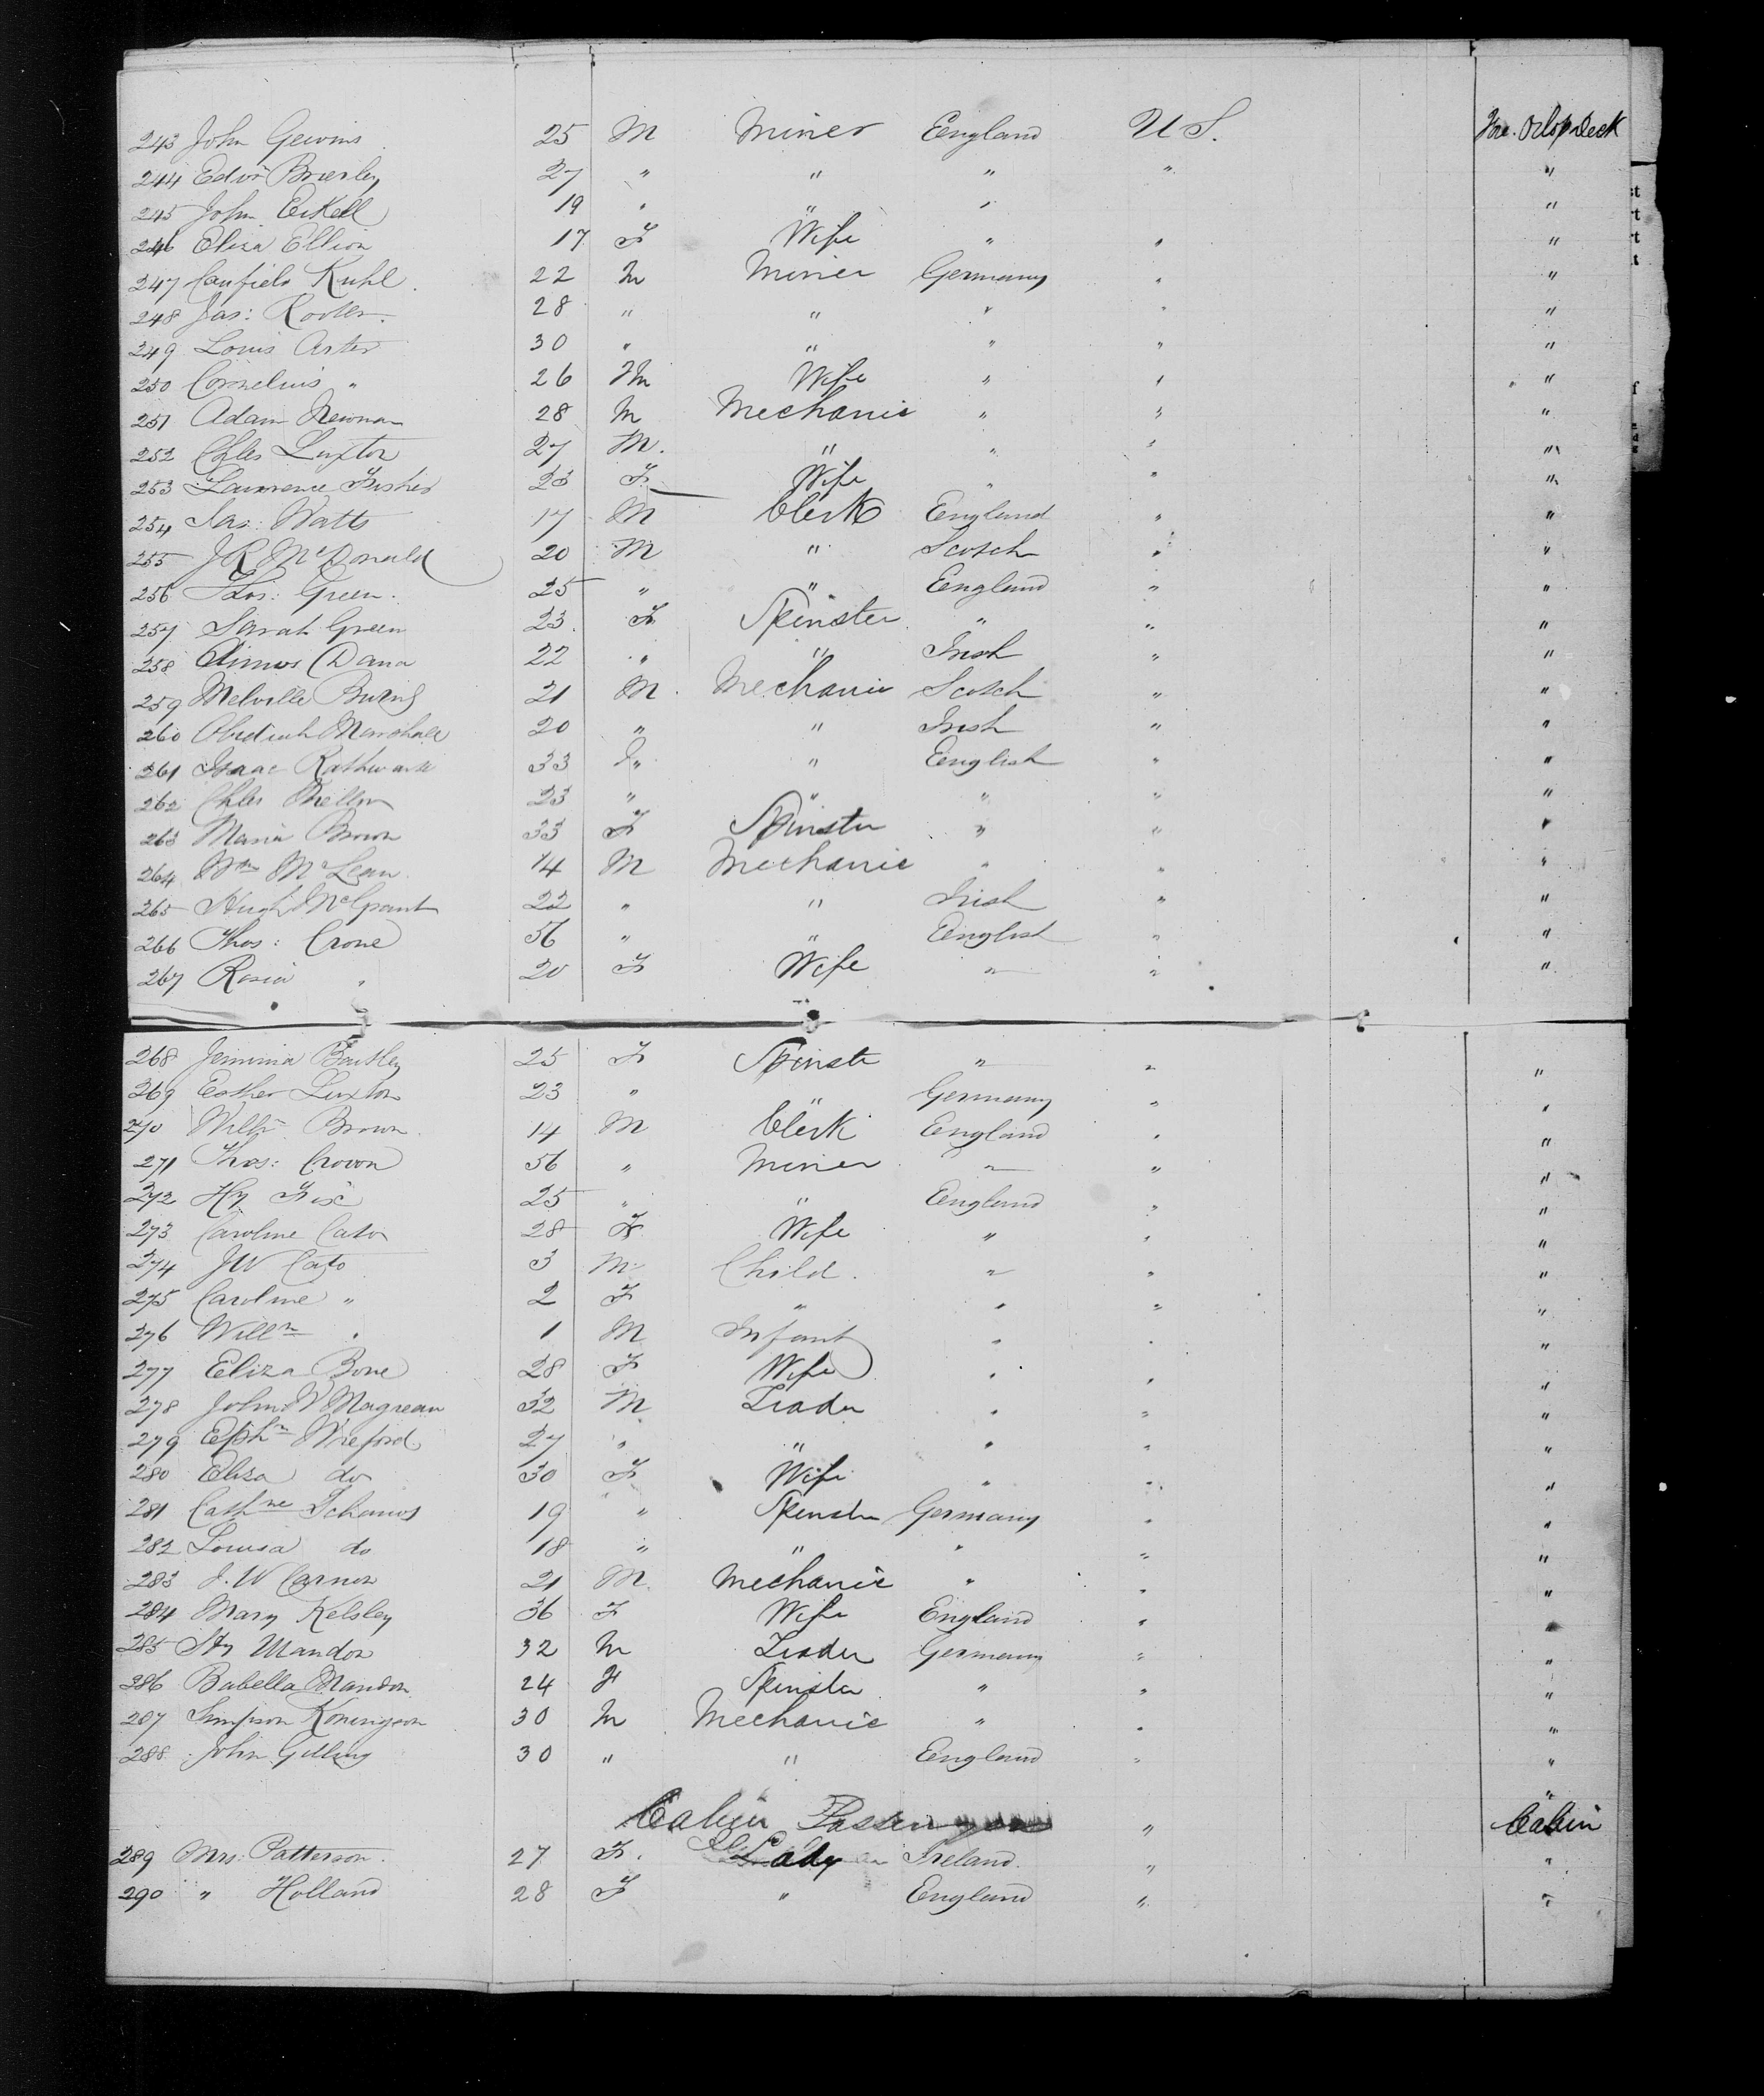 243 John Gewins 25 M Miner England U S. For. Orlop Deck
244 Edwd Brierley 27 " " " " "
245 John Eckell 19 " " " "
246 Eliza Ellion 17 F Wife " " "
247 Canfield Kuhl. 22 M Miner Germany " "
248 Jas: Rooter. 28 " " " " "
249 Louis Arter 30 " " " " "
250 Cornelius " 26 M Wife " " "
251 Adam Newman 28 M Mechanic " " "
252 Chles Luxton 27 M. " " " "
253 Lawrence Fisher 23 F Wife " " "
254 Jas: Watts 17 M Clerk England " "
255 J R McDonald 20 M " Scotch " "
256 Thos: Green. 25 " " England " "
257 Sarah Green 23. F Spinster " " "
258 Dana 22 " " Irish " "
259 Melville Burns 21 M. Mechanic Scotch " "
260 Obediah Marshall 20 " " Irish " "
261 Isaac 33 " " English " "
262 Chles 23 " " " " "
263 Maria Brown 33 F Spinster " " "
264 Wm McLean 14 M Mechanic " " "
265 Hugh McGrant 22 " " Irish " "
266 Thos: Crone 56 " " English " "
267 Rosia " 20 F Wife " " "
268 Jemima Bentley 25 F Spinste " " "
269 Esther Luxton 23 " " Germany " "
270 Willm Brown 14 M Clerk England " "
271 Thos: Crown 56 " Miner " " "
272 Hy Fix 25 " " England " "
273 Caroline Cato 28 F Wife " " "
274 J W Cato 3 M Child. " " "
275 Caroline " 2 F " " " "
276 Willm " 1 M Infant " " "
277 Eliza Bone 28 F Wife " " "
278 John W Magrean 32 M Trader " " "
279 Ephm Wreford 27 " " " " "
280 Eliza do 30 F Wife " " "
281 Cathne Schamos 19 " Spinster Germany " "
282 Louisa do 18 " " " " "
283 J. W Carner 21 M. Mechanic " " "
284 Mary Kelsley 36 F Wife England " "
285 Hy Mandon 32 M Trader Germany " "
286 Babella Mandon 24 F Spinster " " "
287 Simpson Koningson 30 M Mechanic " " "
288. John Gilling 30 " " England " "
"
Cabin Passengers " Cabin
289 Mrs. Patterson. 27 F. Lady Ireland. " "
290 " Holland 28 F " England " "